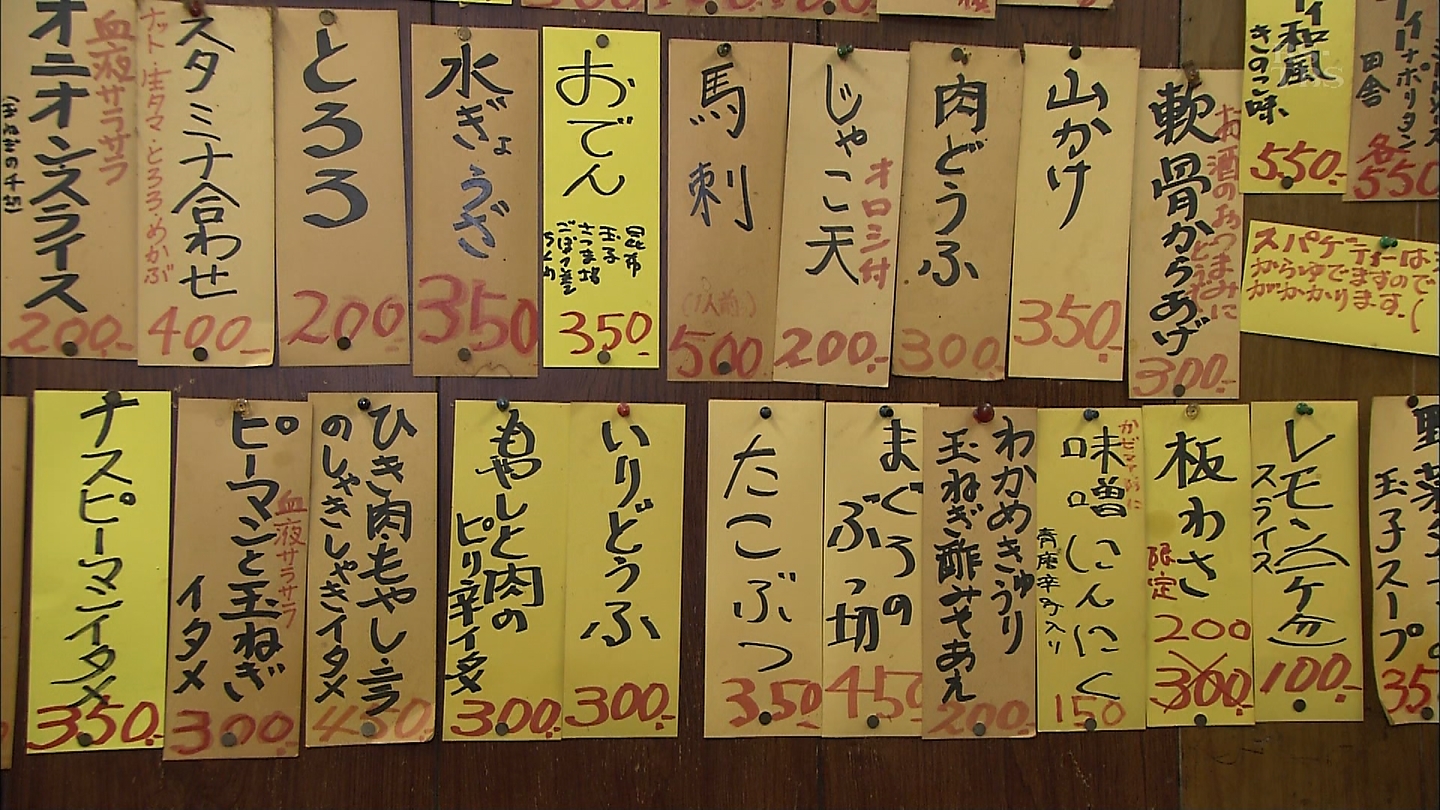 オニオンスライス
血液サラサラ
200-
スタミナ合わせ
ナット・生タマ・とろろ・めかぶ
400-
とろろ
200
水ぎょうざ
350
おでん
昆布
玉子
さつま揚
ごぼう巻
ちくわ
350-
馬刺
(1人前)
500
じゃこ天
オロシ付
200-
肉どうふ
300
山かけ
350-
お酒のおつまみに
どうぞ
軟骨からあげ
300-
和風
きのこ味
550-
ナポリタン
田舎
各
550
スパゲティーは
からゆでますので
がかかります。
ナスピーマンイタメ
350-
ピーマンと玉ねぎ
イタメ
血液サラサラ
300-
ひき肉・もやし・ニラ
のしゃきしゃきイタメ
450
もやしと肉の
ピリ辛イタメ
300-
いりどうふ
300-
たこぶつ
350-
まぐろの
ぶつ切
450
わかめきゅうり
玉ねぎ酢みそあえ
200
味噌にんにく
青唐辛み入り
150
板わさ
限定
200
300-
レモン(一ケ分)
スライス
100-
玉子スープ
35